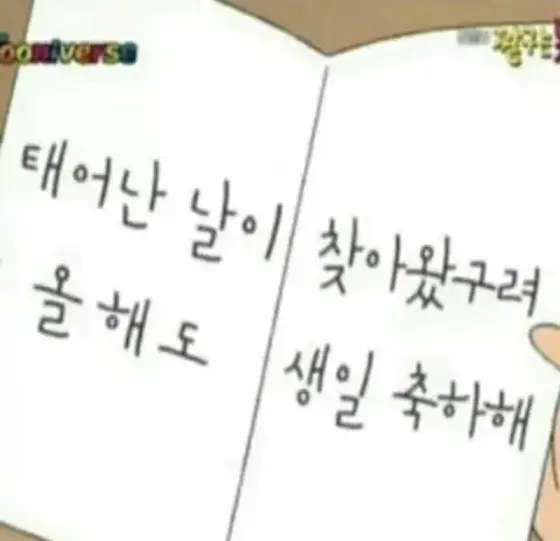 Tooniverse
짱구는
태어난 날이
올해도
찾아왔구려
생일 축하해